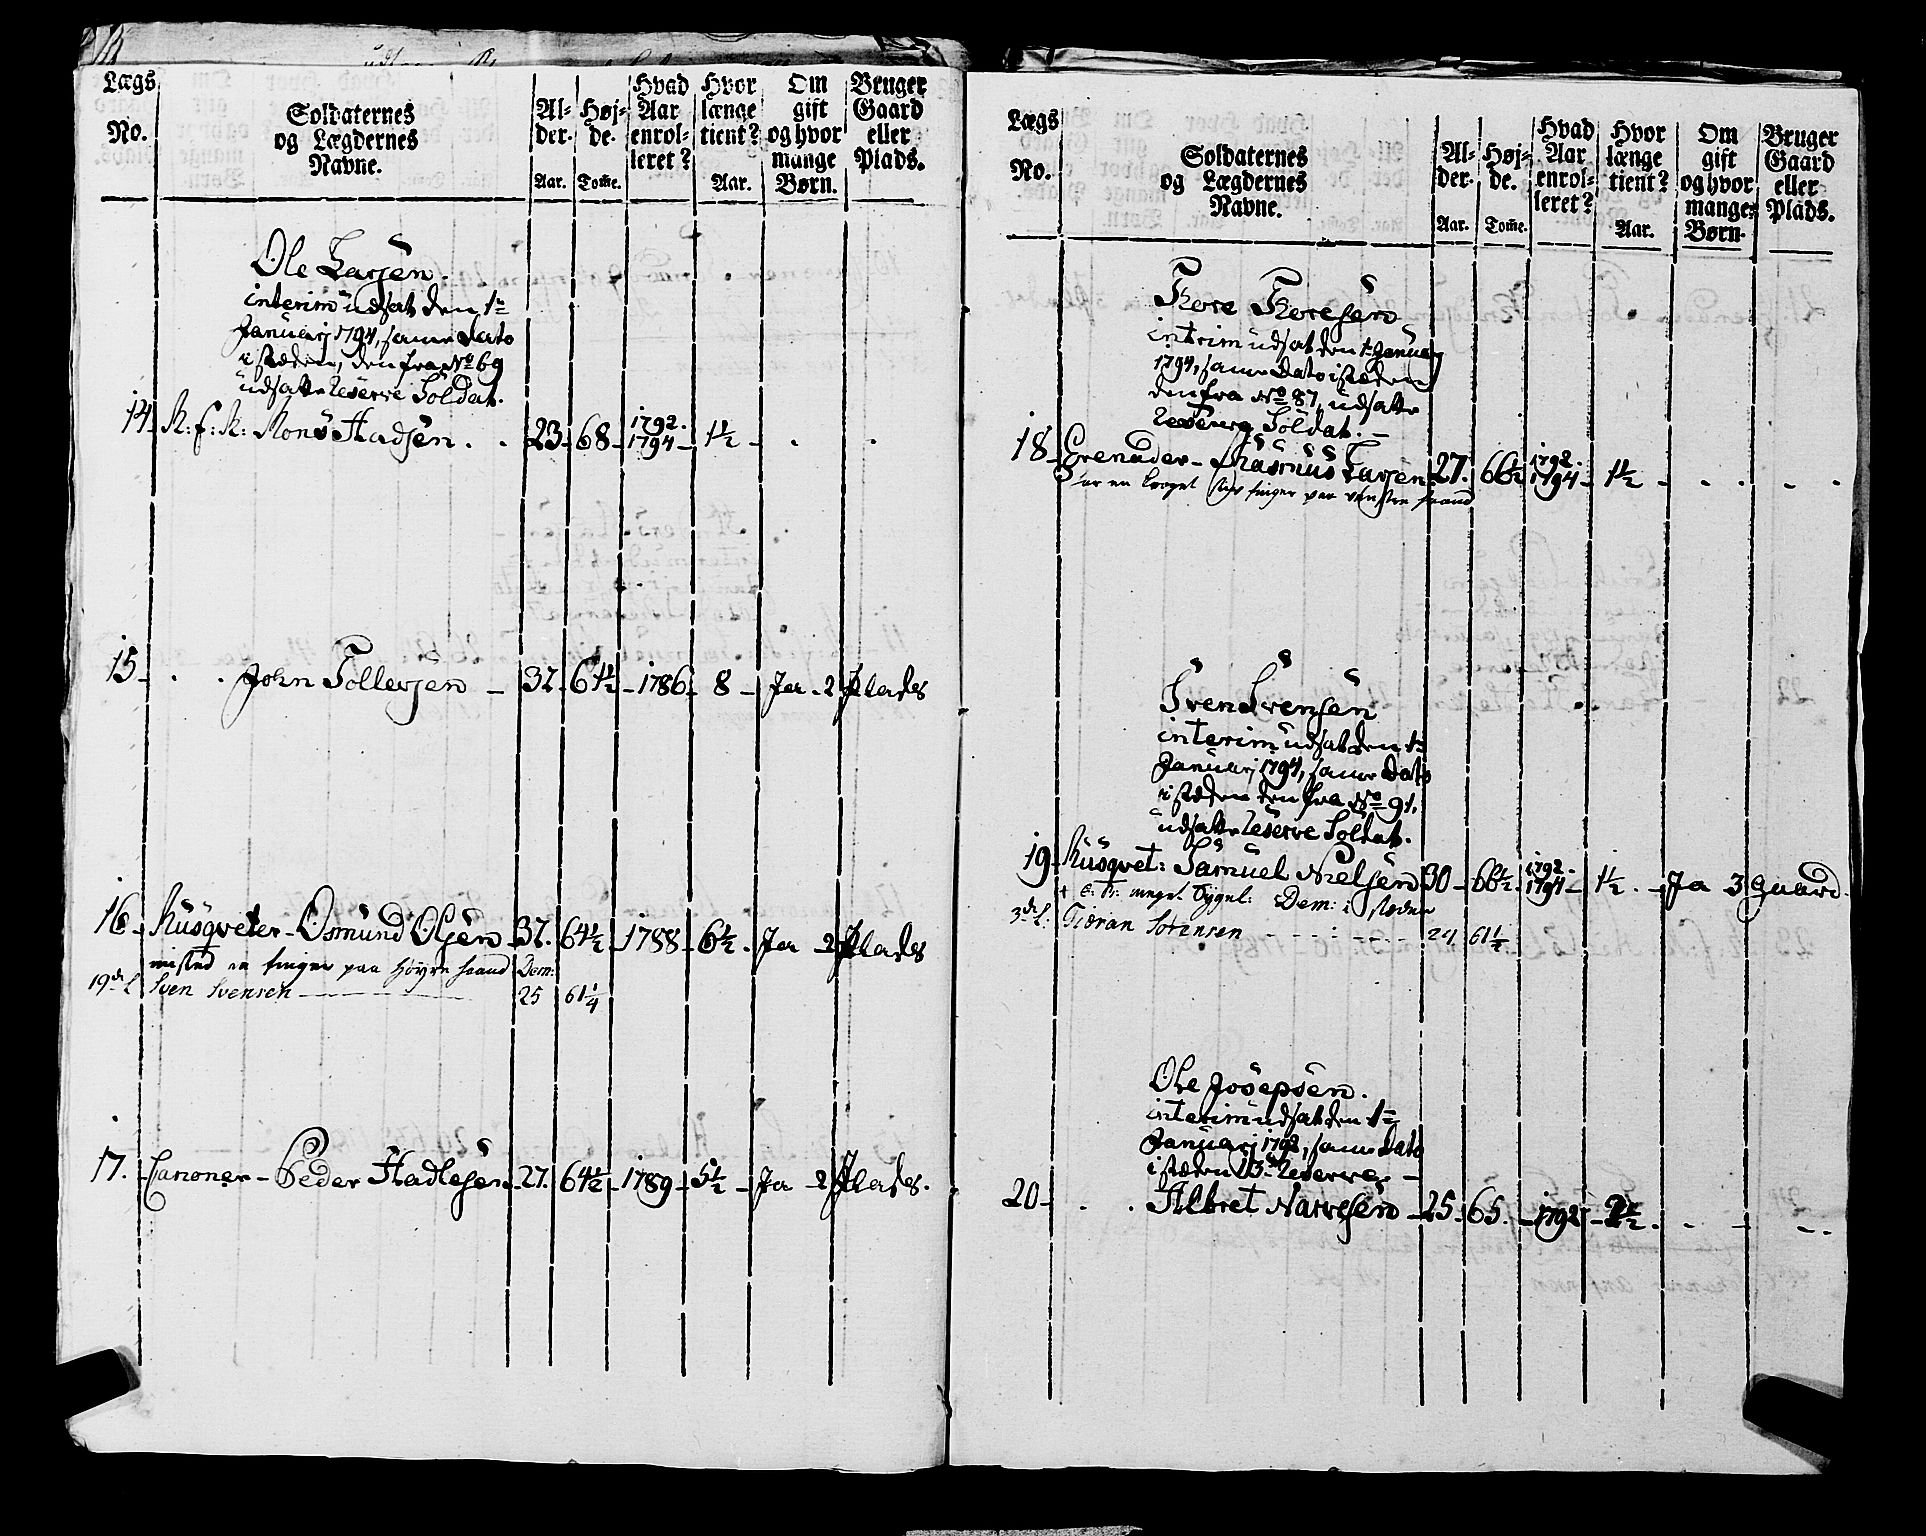 Lægs
No.
Soldaternes
og Lægdernes
Navne.
Al-
der.
Aar.
Høj-
de.
Tom̄e.
Hvad
Aar
enrol-
leret?
Hvor
længe
tient?
Aar.
Om
gift
og hvor
mange
Børn.
Bruger
Gaard
eller
Plads.
Ole Larsen.
interim udsat den 1te
Januarj 1794, samme Dato
i stæden, den fra No 69
udsatte Reserve Soldat.
14. R: f: R: Mons Hadsen . . 23 - 68 - 1792. 1794 - 1½ - . .
15 - . . John Tollevsen - 37 - 64½ - 1786 - 8 - Ja - 2 Plads
16 - Rusqveter - Osmund Olsen - 37. 64½ - 1788 - 6½ - Ja - 2 Plads
misted en finger paa høyre haand Dem:
19de L Sven Svensen 25 61¼
17. - Canoner - Peder Hadlesen - 27. 64½ - 1789 - 5½ - Ja - 2 Plads.
Lægs
No.
Soldaternes
og Lægdernes
Navne.
Al-
der.
Aar.
Høj-
de.
Tom̄e.
Hvad
Aar
enrol-
leret?
Hvor
længe
tient?
Aar.
Om
gift
og hvor
mange
Børn.
Bruger
Gaard
eller
Plads.
Tore Toresen
interim udsat den 1te Januarj
1794, samme Dato i stæden
den fra No 87, udsatte
Reserve Soldat. -
18 - Grenader - Rasmus Larsen 27. 66½ 1792. 1794 - 1½ - . . - .
har en finger paa venstre haand
Sven Svensen
interim udsat den 1te
Januarj 1794, samme Dato
i stæden den fra No 91,
udsatte Reserve Soldat.
19 - Rusqvet: Samuel Nielsen 30 - 66½ - 1792 - 1794 - 1½ - Ja 3 Gaard.
meget Sygel: Dem: i stæden
3de L. Giøran Sørensen - - - - 24 61½
Ole Josepsen.
interim udsat den 1te
Januarj 1792, samme Dato
i stæden Reserve -
20 - . . Albret Narvesen - 25 - 65. - 1792 - 2½ - . - - .